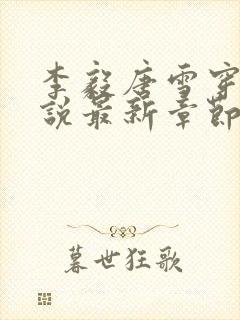 李毅唐雪穿
说最新章節
暮世狂歌